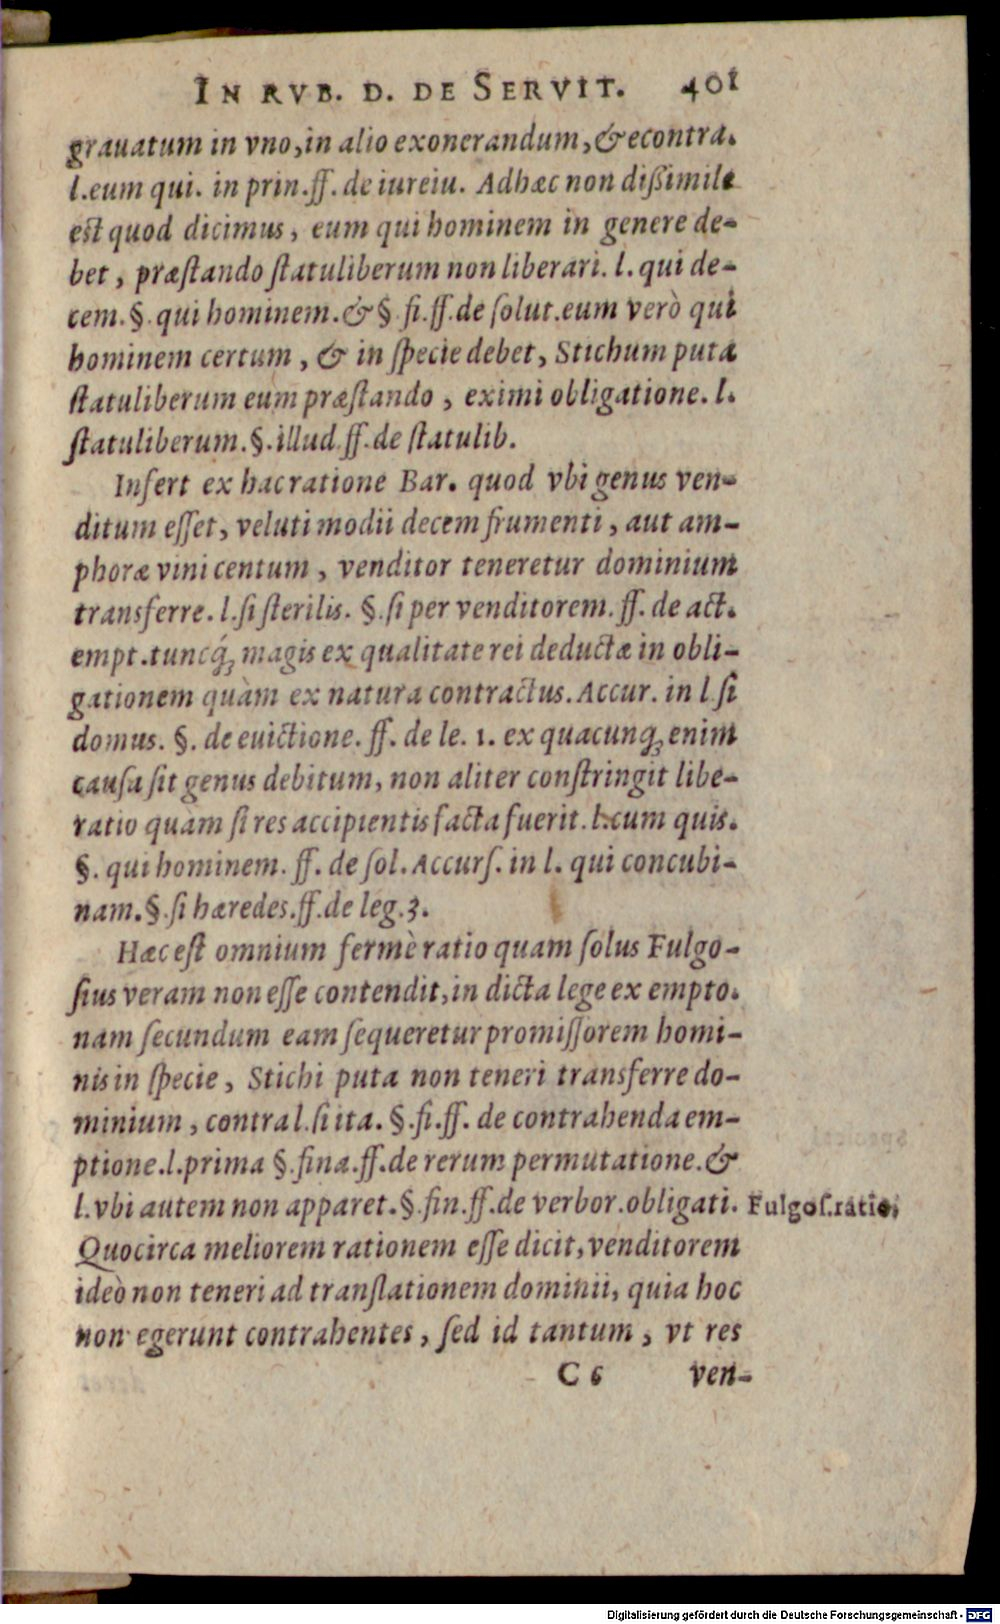 IN RVB. D. DE SERVIT. 401
grauatum in vno, in alio exonerandum, & econtra.
l. eum qui. in prin. ff. de iureiu. Adhæc non dißimile
est quod dicimus, eum qui hominem in genere de-
bet, præstando statuliberum non liberari. l. qui de-
cem. §. qui hominem. & §. fi. ff. de solut. eum verò qui
hominem certum, & in specie debet, Stichum puta
statuliberum eum præstando, eximi obligatione. l.
statuliberum. §. illud. ff. de statulib.
Infert ex hac ratione Bar. quod vbi genus ven-
ditum esset, veluti modii decem frumenti, aut am-
phoræ vini centum, venditor teneretur dominium
transferre. l. si sterilis. §. si per venditorem. ff. de act.
empt. tuncq́; magis ex qualitate rei deductæ in obli-
gationem quàm ex natura contractus. Accur. in l. si
domus. §. de euictione. ff. de le. 1. ex quacunq; enim
causa sit genus debitum, non aliter constringit libe-
ratio quàm si res accipientis facta fuerit. l. cum quis.
§. qui hominem. ff. de sol. Accurs. in l. qui concubi-
nam. §. si hæredes. ff. de leg. 3.
Hæc est omnium fermè ratio quam solus Fulgo-
sius veram non esse contendit, in dicta lege ex empto.
nam secundum eam sequeretur promissorem homi-
nis in specie, Stichi puta non teneri transferre do-
minium, contra l. si ita. §. fi. ff. de contrahenda em-
ptione. l. prima §. fina. ff. de rerum permutatione. &
l. vbi autem non apparet. §. fin. ff. de verbor. obligati.
Fulgos. ratio.
Quocirca meliorem rationem esse dicit, venditorem
ideò non teneri ad translationem dominii, quia hoc
non egerunt contrahentes, sed id tantum, vt res
C 6 ven-
Digitalisierung gefördert durch die Deutsche Forschungsgemeinschaft - DFG